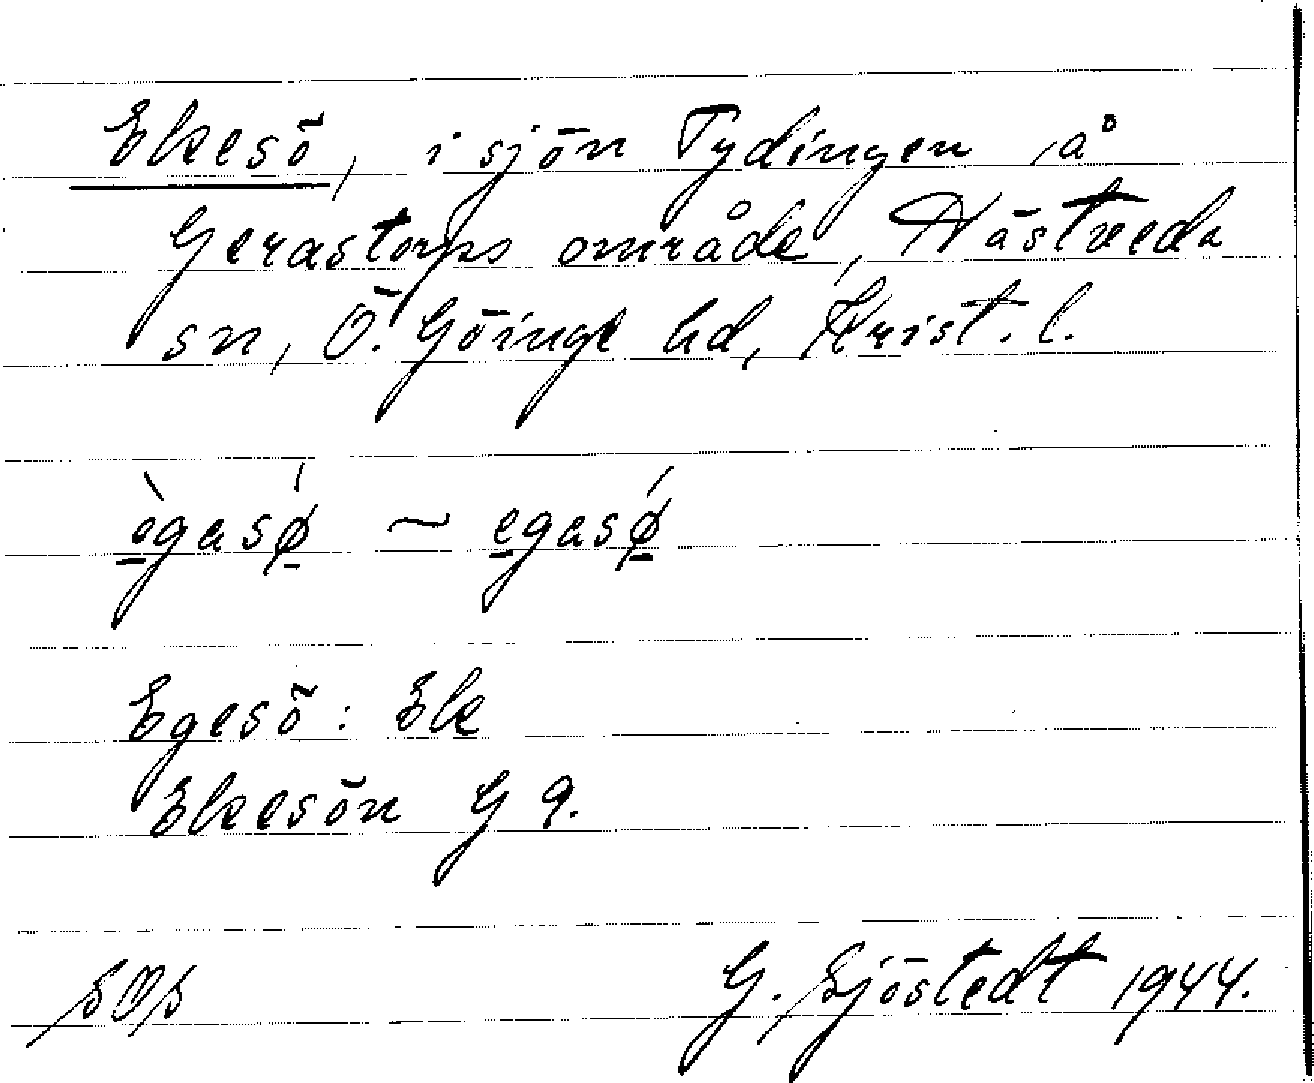 Ekesö, i sjön Tydingen, å
Gerastorps område, Nästveda
sn, Ö. Göinge hd, Krist. l.
ègasǿ ~ egasǿ
Egesö: Ek
Ekesön G 9.
G. Sjöstedt 1944.